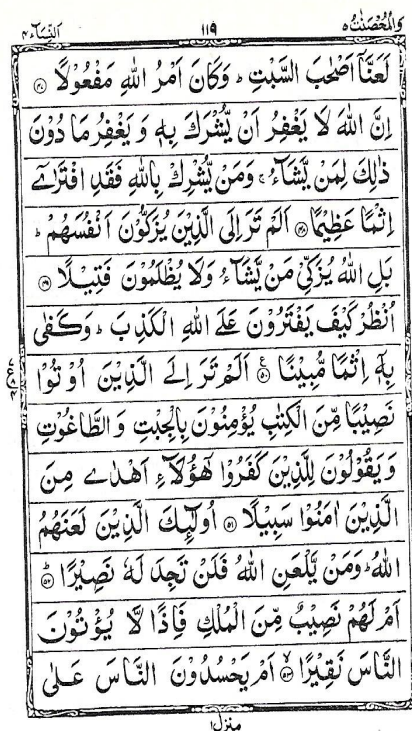 النِّسَآء ٤ ١١٩ وَالْمُحْصَنٰتُ ٥
لَعَنَّآ اَصْحٰبَ السَّبْتِ ؕ وَكَانَ اَمْرُ اللّٰهِ مَفْعُوْلًا ﴿۴۷﴾
اِنَّ اللّٰهَ لَا يَغْفِرُ اَنْ يُّشْرَكَ بِهٖ وَ يَغْفِرُ مَا دُوْنَ
ذٰلِكَ لِمَنْ يَّشَآءُ ۚ وَمَنْ يُّشْرِكْ بِاللّٰهِ فَقَدِ افْتَرٰٓے
اِثْمًا عَظِيْمًا ﴿۴۸﴾ اَلَمْ تَرَ اِلَى الَّذِيْنَ يُزَكُّوْنَ اَنْفُسَهُمْ ؕ
بَلِ اللّٰهُ يُزَكِّيْ مَنْ يَّشَآءُ وَلَا يُظْلَمُوْنَ فَتِيْلًا ﴿۴۹﴾
اُنْظُرْ كَيْفَ يَفْتَرُوْنَ عَلَے اللّٰهِ الْكَذِبَ ؕ وَكَفٰى
بِهٖٓ اِثْمًا مُّبِيْنًا ﴿۵۰﴾ ع اَلَمْ تَرَ اِلَے الَّذِيْنَ اُوْتُوْا
نَصِيْبًا مِّنَ الْكِتٰبِ يُؤْمِنُوْنَ بِالْجِبْتِ وَ الطَّاغُوْتِ
وَ يَقُوْلُوْنَ لِلَّذِيْنَ كَفَرُوْا هٰٓؤُلَآءِ اَهْدٰے مِنَ
الَّذِيْنَ اٰمَنُوْا سَبِيْلًا ﴿۵۱﴾ اُولٰٓئِكَ الَّذِيْنَ لَعَنَهُمُ
اللّٰهُ ؕ وَمَنْ يَّلْعَنِ اللّٰهُ فَلَنْ تَجِدَ لَهٗ نَصِيْرًا ﴿۵۲﴾ؕ
اَمْ لَهُمْ نَصِيْبٌ مِّنَ الْمُلْكِ فَاِذًا لَّا يُؤْتُوْنَ
النَّاسَ نَقِيْرًا ﴿۵۳﴾ۙ اَمْ يَحْسُدُوْنَ النَّاسَ عَلٰى
منزل ١